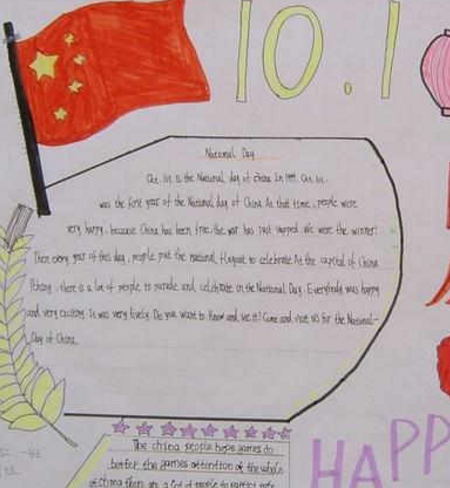 10.1
National Day
Oct. 1st is the National day of China In 1949. Oct. 1st.
was the first year of the National day of China At that time, people were
very happy. because China has been free. the war has just stopped. We were the winner!
Then every year of this day, people put the national to celebrate At the capital of China
there is a lot of people to parade and celebrate on the National Day. Everybody was happy
and very exciting. It was very lively. Do you want to know and see it! Come and visit us for the National-
Day of China.
The china people hope games do
better the games attention of the whole
of china Then are a lot of people to
HAPP